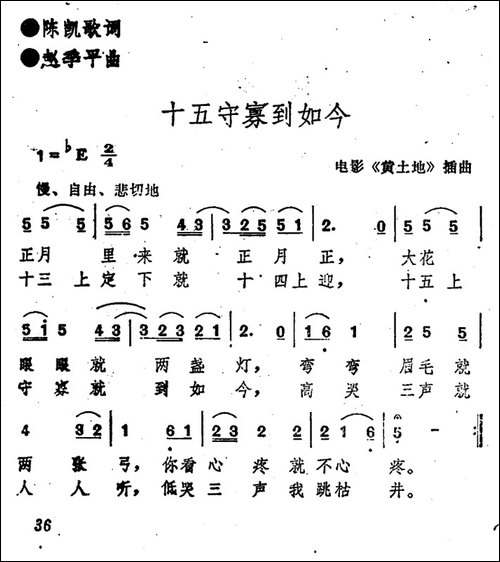 ●陈凯歌词
●赵季平曲
十五守寡到如今
1=♭E 2/4
电影《黄土地》插曲
慢、自由、悲切地
5 5 5 | 5 6 5 4 3 | 3 2 5 5 1 | 2. 0 | 5 5 5 |
正月 里来就 正月正, 大花
十三上定下就 十四上迎, 十五上
5 1 5 4 3 | 3 2 3 2 1 | 2. 0 | 1 6 1 | 2 5 5 |
眼眼就 两盏灯, 弯弯眉毛就
守寡就 到如今, 高哭三声就
4 3 2 | 1 6 1 | 2 3 2 2 | 2 1 6 | 5 - :‖
两张弓, 你看心疼就不心疼。
人人听, 低哭三声我跳枯井。
36